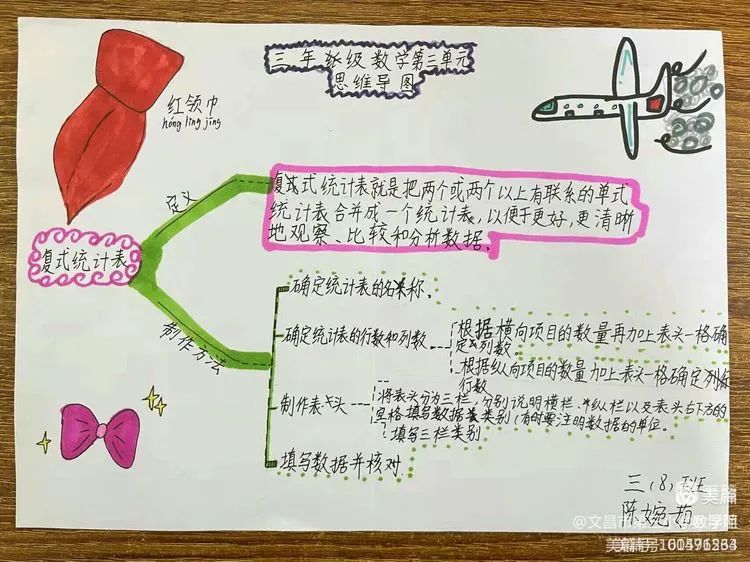 三年级数学第三单元
思维导图
红领巾
hóng lǐng jīng
复式统计表
定义
复式统计表就是把两个或两个以上有联系的单式
统计表合并成一个统计表,以便于更好,更清晰
地观察、比较和分析数据。
制作方法
确定统计表的名称。
确定统计表的行数和列数
根据横向项目的数量再加上表头一格确
定列数。
根据纵向项目的数量加上表头一格确定列
行数
制作表头
将表头分为三栏,分别说明横栏、纵栏以及表头右下方的
空格填写数据类别(有时要注明数据的单位。
填写三栏类别
填写数据并核对
三(8)班
陈婉茹
美篇
@文昌市
美篇号